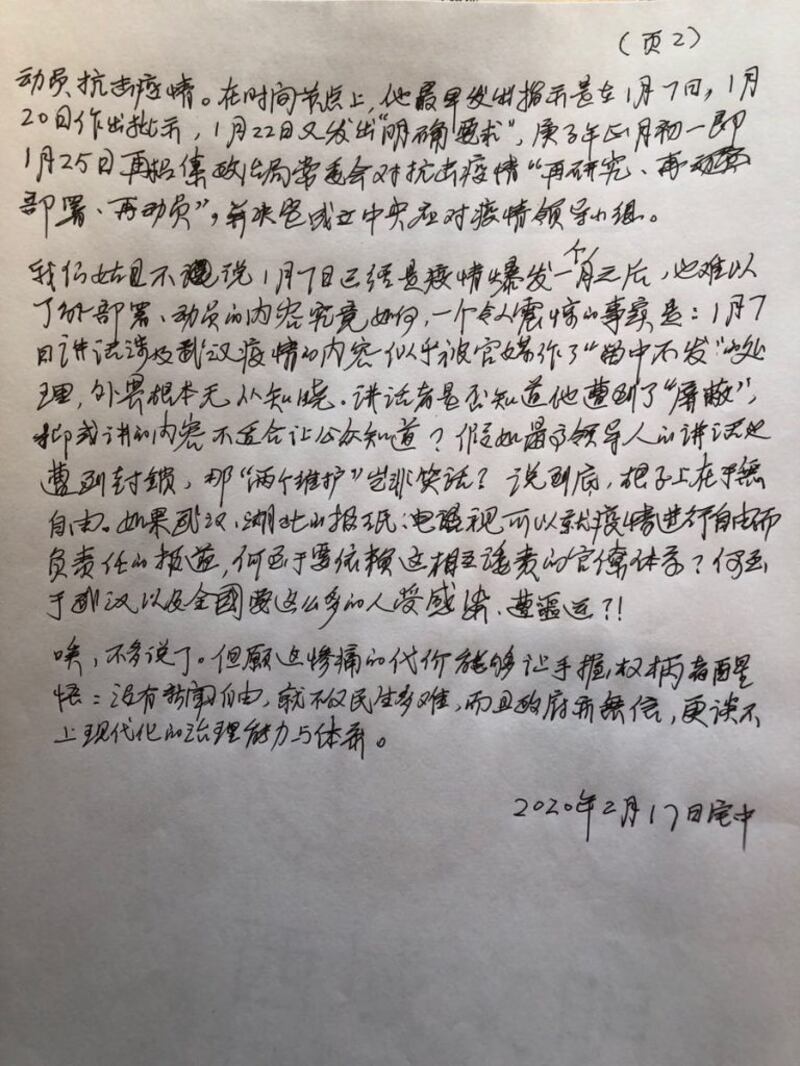 （页2）
动员抗击疫情。在时间节点上，他最早发出指示是在1月7日，1月
20日作出批示，1月22日又发出“明确要求”，庚子年正月初一即
1月25日再招集政治局常委会对抗击疫情“再研究、再
部署、再动员”，并决定成立中央应对疫情领导小组。
我们姑且不说1月7日已经是疫情爆发一个月之后，也难以
了解部署、动员的内容究竟如何，一个令人震惊的事实是：1月7
日讲话涉及武汉疫情的内容似乎被官媒作了“留中不发”的处
理，外界根本无从知晓。讲话者是否知道他遭到了“屏蔽”，
抑或讲的内容不适合让公众知道？假如最高领导人的讲话也
遭到封锁，那“两个维护”岂非笑话？说到底，根子上在于無
自由。如果武汉、湖北的报纸、电视可以就疫情进行自由而
负责任的报道，何至于要依赖这相互诿责的官僚体系？何至
于武汉以及全國要这么多的人受感染、遭噩运？！
唉，不多说了。但愿这惨痛的代价能够让手握权柄者醒
悟：没有新闻自由，就不仅民生多难，而且政府亦無信，更谈不
上现代化的治理能力与体系。
2020年2月17日宅中